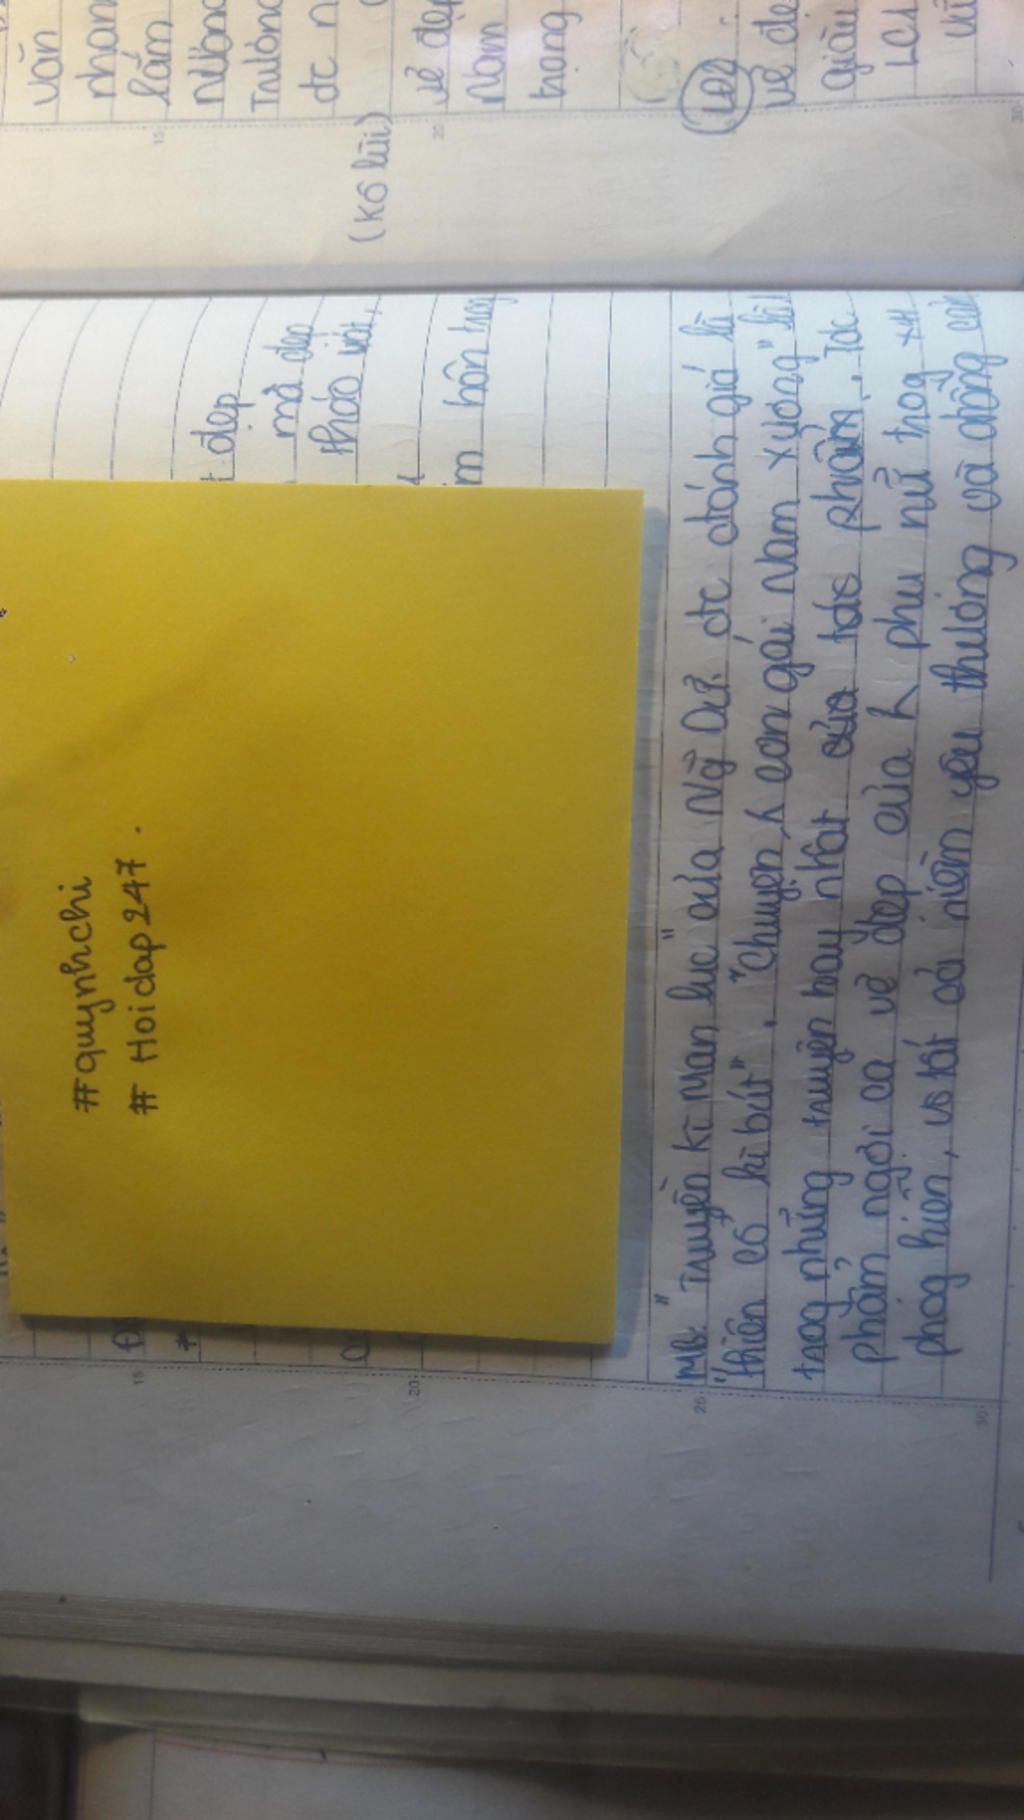 #quynhchi
# Hoidap247.
văn
nhan
lắm
Nương
Trương
đc n
(Ko lùi)
vẻ đẹp
Nam
trọng
(LĐ2
vẻ đẹ
giàu
LCI
đẹp
mà đẹp
tháo vát,
m hôn trog
MB: "Truyền kì Man lục" của Ng~ Dữ. đc đánh giá là
"thiên cổ kì bút". "Chuyện ng con gái Nam Xương" là
trog những truyện hay nhất của tác phẩm. Tác
phẩm ngợi ca vẻ đẹp của ng phụ nữ trog XH
phog kiến, vs tất cả niềm yêu thương và đồng cảm